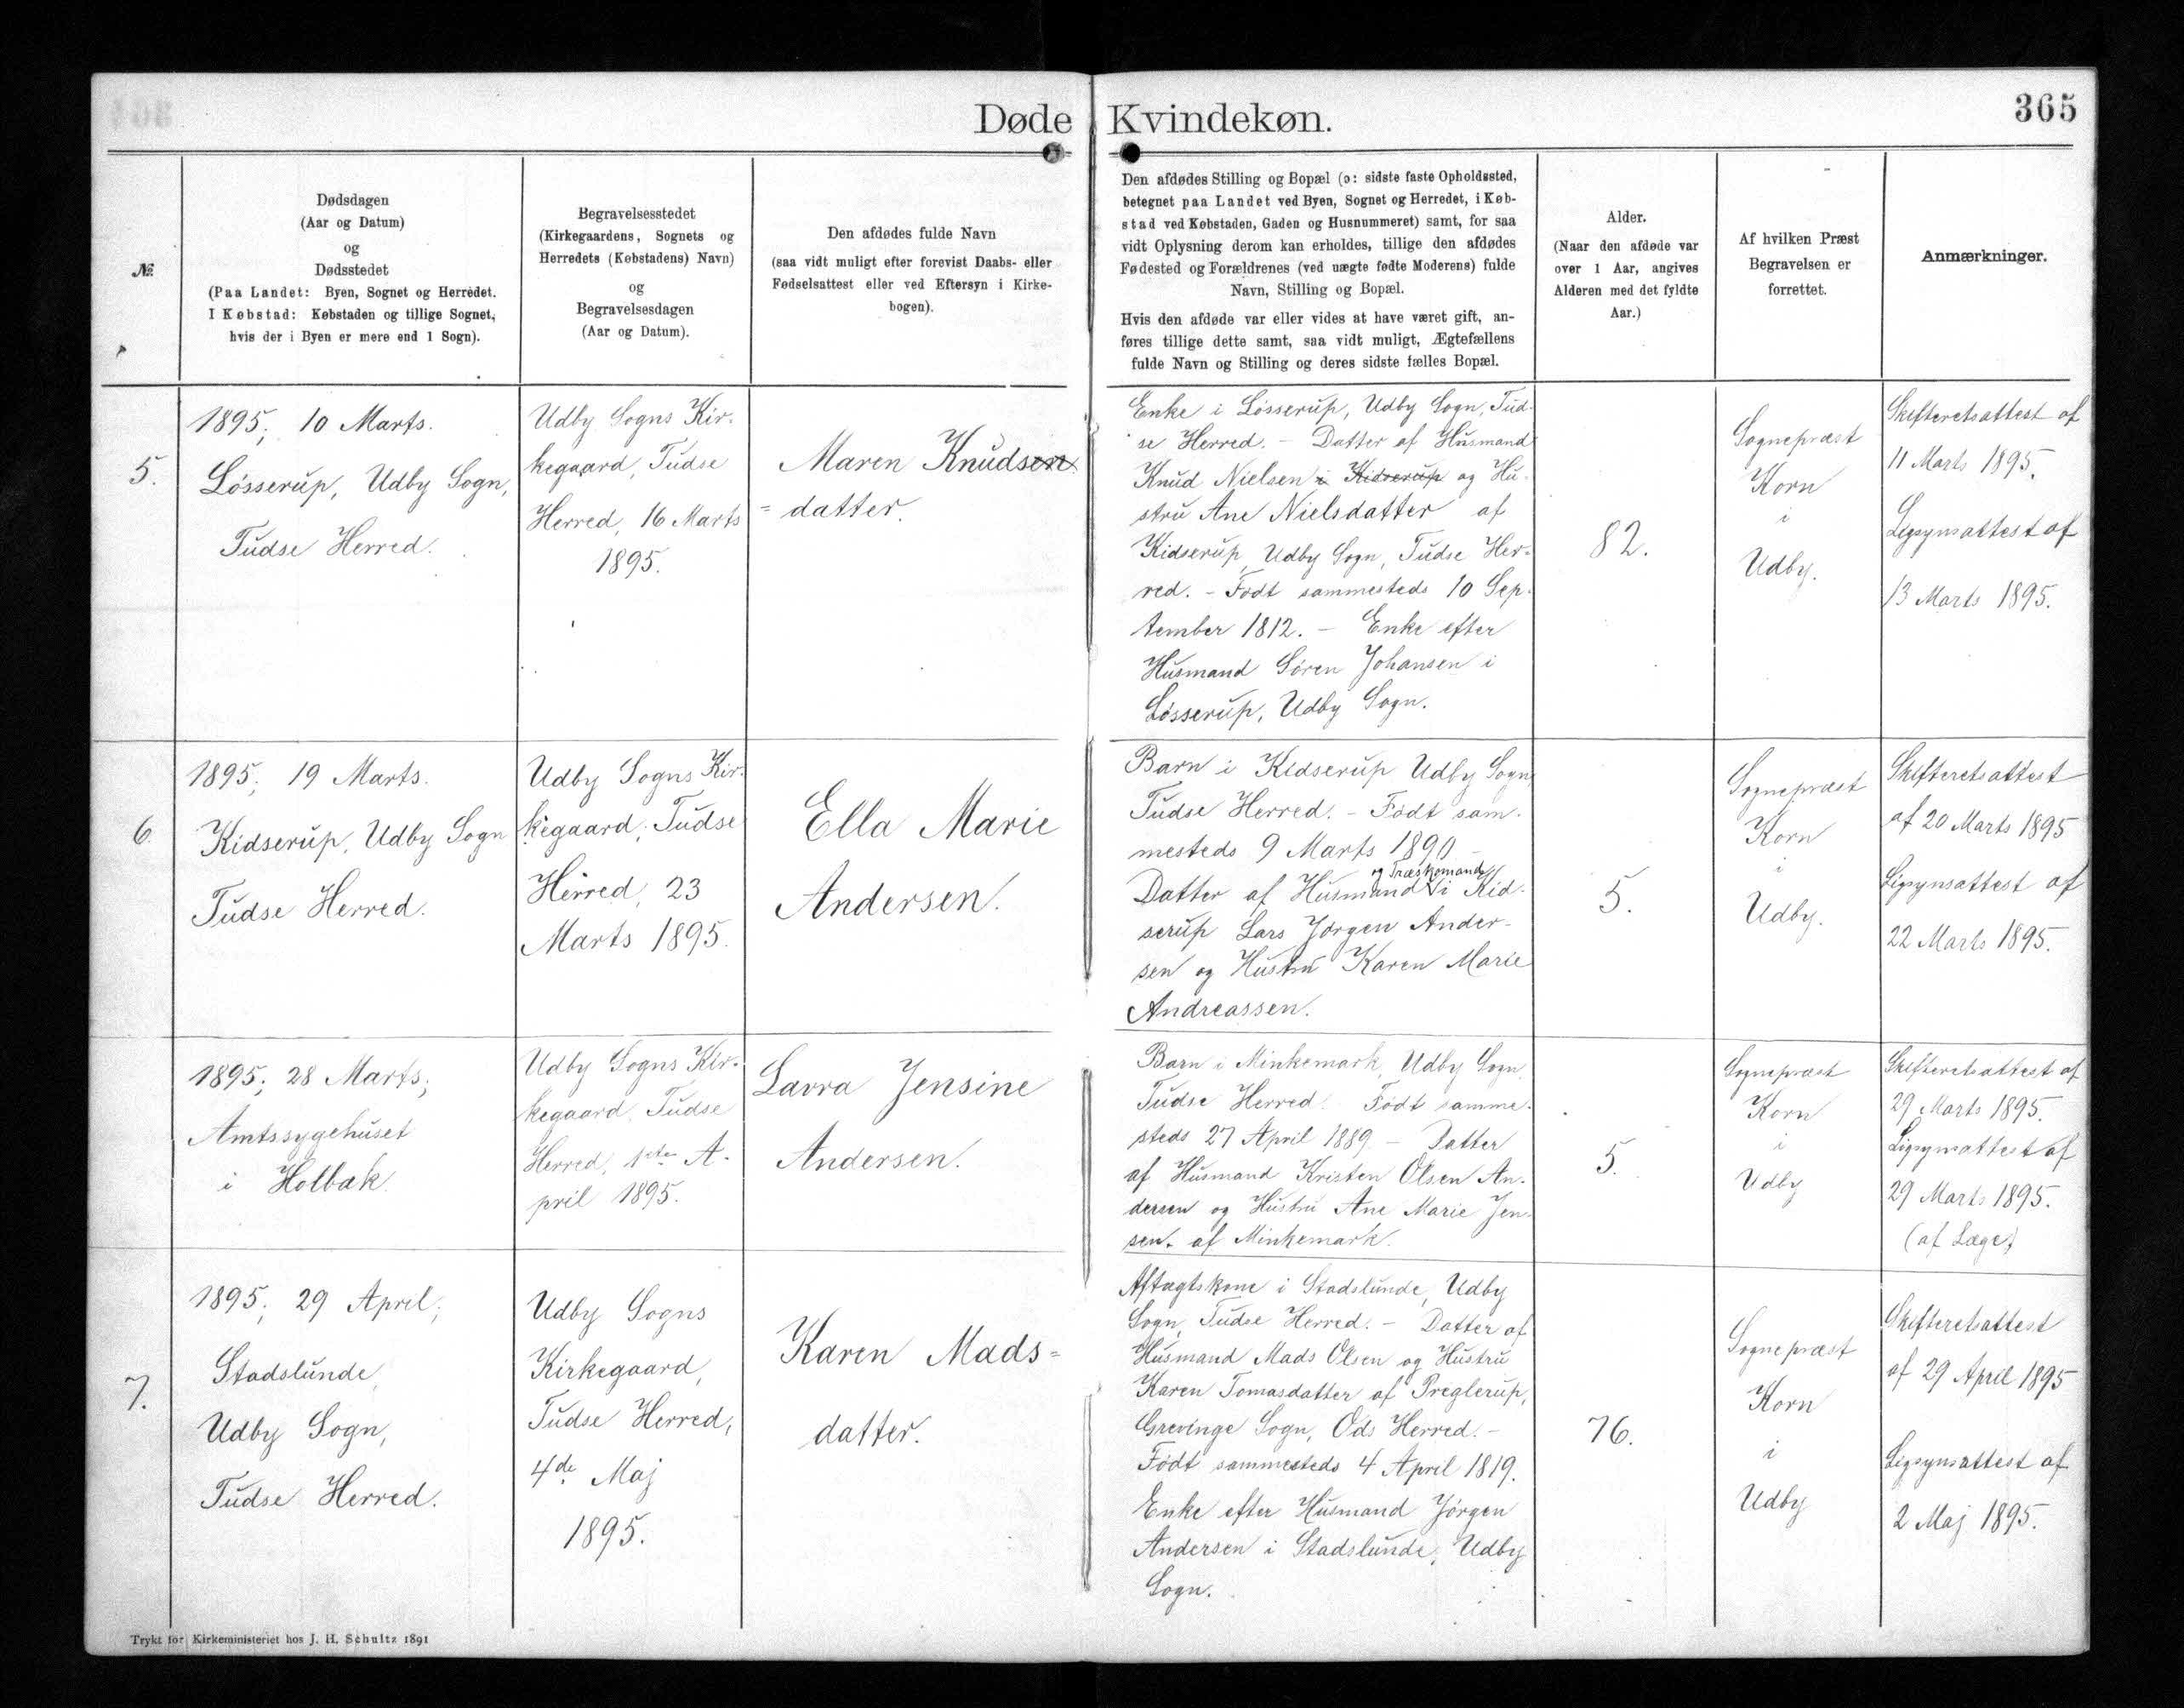 Døde Kvindekøn.
365
№
Dødsdagen
(Aar og Datum)
og
Dødsstedet
(Paa Landet: Byen, Sognet og Herredet.
I Købstad: Købstaden og tillige Sognet,
hvis der i Byen er mere end 1 Sogn).
Begravelsesstedet
(Kirkegaardens, Sognets og
Herredets (Købstadens) Navn)
og
Begravelsesdagen
(Aar og Datum).
Den afdødes fulde Navn
(saa vidt muligt efter forevist Daabs- eller
Fødselsattest eller ved Eftersyn i Kirke-
bogen).
Den afdødes Stilling og Bopæl (ɔ: sidste faste Opholdssted,
betegnet paa Landet ved Byen, Sognet og Herredet, i Køb-
stad ved Købstaden, Gaden og Husnummeret) samt, for saa
vidt Oplysning derom kan erholdes, tillige den afdødes
Fødested og Forældrenes (ved uægte fødte Moderens) fulde
Navn, Stilling og Bopæl.
Hvis den afdøde var eller vides at have været gift, an-
føres tillige dette samt, saa vidt muligt, Ægtefællens
fulde Navn og Stilling og deres sidste fælles Bopæl.
Alder.
(Naar den afdøde var
over 1 Aar, angives
Alderen med det fyldte
Aar.)
Af hvilken Præst
Begravelsen er
forrettet.
Anmærkninger.
5.
1895; 10 Marts.
Løsserup, Udby Sogn,
Tudse Herred.
Udby Sogns Kir-
kegaard, Tudse
Herred, 16 Marts
1895.
Maren Knudsen
= datter.
Enke i Løsserup, Udby Sogn, Tud-
se Herred. - Datter af Husmand
Knud Nielsen i Kidserup og Hu-
stru Ane Nielsdatter af
Kidserup, Udby Sogn, Tudse Her-
red. - Født sammesteds 10 Sep-
tember 1812. - Enke efter
Husmand Søren Johansen i
Løsserup, Udby Sogn.
82.
Sognepræst
Korn
i
Udby.
Skifteretsattest af
11 Marts 1895.
Ligsynsattest af
13 Marts 1895.
6.
1895; 19 Marts.
Kidserup, Udby Sogn
Tudse Herred.
Udby Sogns Kir-
kegaard, Tudse
Herred, 23
Marts 1895.
Ella Marie
Andersen.
Barn i Kidserup Udby Sogn,
Tudse Herred. - Født sam-
mesteds 9 Marts 1890 -
og Træskomand
Datter af Husmand i Kid-
serup Lars Jørgen Ander-
sen og Hustru Karen Marie
Andreassen.
5.
Sognepræst
Korn
i
Udby.
Skifteretsattest
af 20 Marts 1895
Ligsynsattest af
22 Marts 1895.
1895; 28 Marts;
Amtssygehuset
i Holbæk
Udby Sogns Kir-
kegaard, Tudse
Herred, 1ste A-
pril 1895.
Lavra Jensine
Andersen.
Barn i Minkemark, Udby Sogn,
Tudse Herred. Født samme-
steds 27 April 1889 - Datter
af Husmand Kristen Olsen An-
dersen og Hustru Ane Marie Jen-
sen. af Minkemark.
5.
Sognepræst
Korn
i
Udby
Skifteretsattest af
29 Marts 1895.
Ligsynsattest af
29 Marts 1895.
(af Læge)
7.
1895; 29 April;
Stadslunde,
Udby Sogn,
Tudse Herred.
Udby Sogns
Kirkegaard,
Tudse Herred,
4de Maj
1895.
Karen Mads=
datter.
Aftægtskone i Stadslunde, Udby
Sogn, Tudse Herred. - Datter af
Husmand Mads Olsen og Hustru
Karen Tomasdatter af Preglerup,
Grevinge Sogn, Ods Herred. -
Født sammesteds 4 April 1819.
Enke efter Husmand Jørgen
Andersen i Stadslunde, Udby
Sogn.
76.
Sognepræst
Korn
i
Udby
Skifteretsattest
af 29 April 1895
Ligsynsattest af
2 Maj 1895.
Trykt for Kirkeministeriet hos J. H. Schultz 1891